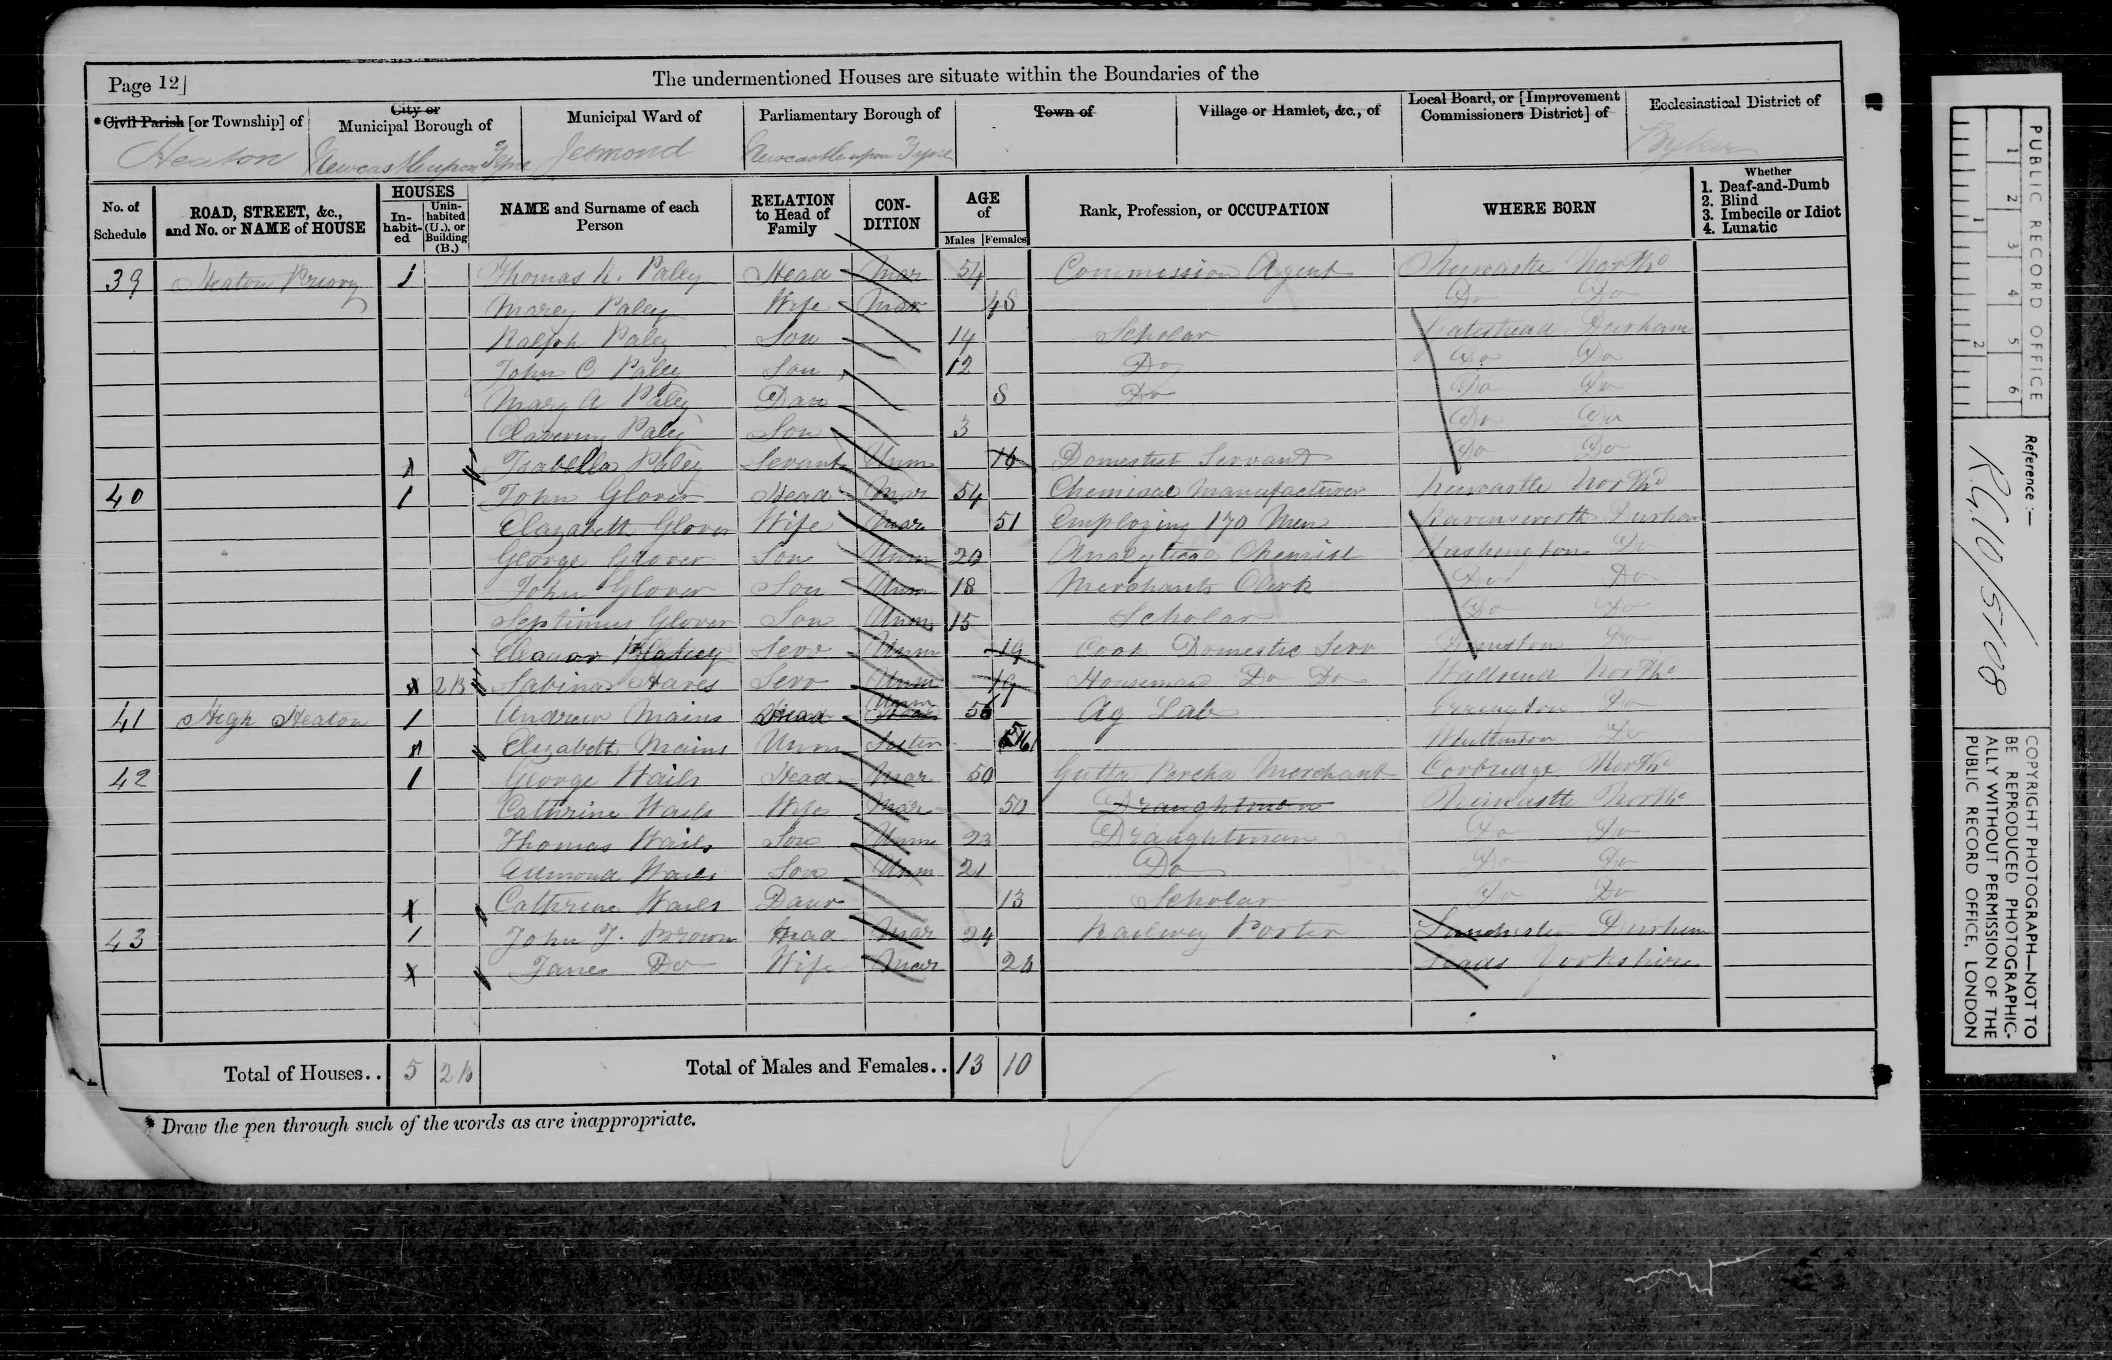 Page 12]
The undermentioned Houses are situate within the Boundaries of the
* Civil Parish [or Township] of
Heaton
City or Municipal Borough of
Newcastle upon Tyne
Municipal Ward of
Jesmond
Parliamentary Borough of
Newcastle upon Tyne
Town of
Village or Hamlet, &c., of
Local Board, or [Improvement Commissioners District] of
Ecclesiastical District of
Byker
No. of Schedule
ROAD, STREET, &c., and No. or NAME of HOUSE
HOUSES
In-habit-ed
Unin-habited (U.), or Building (B.)
NAME and Surname of each Person
RELATION to Head of Family
CON-DITION
AGE of
Males Females
Rank, Profession, or OCCUPATION
WHERE BORN
Whether
1. Deaf-and-Dumb
2. Blind
3. Imbecile or Idiot
4. Lunatic
39 Heaton Priory 1 Thomas Paley Head Mar 54 Commission Agent Newcastle North^d
Mary Paley Wife Mar 48 Do Do
Ralph Paley Son 14 Scholar Gateshead Durham
John C Paley Son 12 Do Do Do
Mary A Paley Dau 8 Do Do Do
Paley Son 3 Do Do
Isabella Paley Servant Unm 16 Domestic Servant Do Do
40 1 John Glover Head Mar 54 Chemical Manufacturer Newcastle North^d
Elizabeth Glover Wife Mar 51 Employing 170 Men Ravensworth Durham
George Glover Son Unm 20 Analytical Chemist Washington Do
John Glover Son Unm 18 Merchants Clerk Do Do
Septimus Glover Son Unm 15 Scholar Do Do
Eleanor Serv Unm 19 Cook Domestic Serv Do
2B Sabina Serv Unm 19 Housemaid Do Do Wallsend North^d
41 High Heaton 1 Andrew Mains Head Unm Ag Lab Do
Elizabeth Mains Unm Sister Do
42 1 George Wails Head Mar 50 Gutta Percha Merchant Corbridge North^d
Cathrine Wails Wife Mar 50 Draughtsman Newcastle North^d
Thomas Wails Son Unm 23 Draughtsman Do Do
Wails Son Unm 21 Do Do Do
Cathrine Wails Daur 13 Scholar Do Do
43 1 John J. Brown Head Mar 24 Railway Porter Lanchester Durham
Jane Do Wife Mar Leeds Yorkshire
Total of Houses.. 5 2B
Total of Males and Females.. 13 10
* Draw the pen through such of the words as are inappropriate.
PUBLIC RECORD OFFICE
1 2 3 4 5 6
1 2
Reference :-
R.G.10/5108
COPYRIGHT PHOTOGRAPH—NOT TO BE REPRODUCED PHOTOGRAPHIC-ALLY WITHOUT PERMISSION OF THE PUBLIC RECORD OFFICE, LONDON